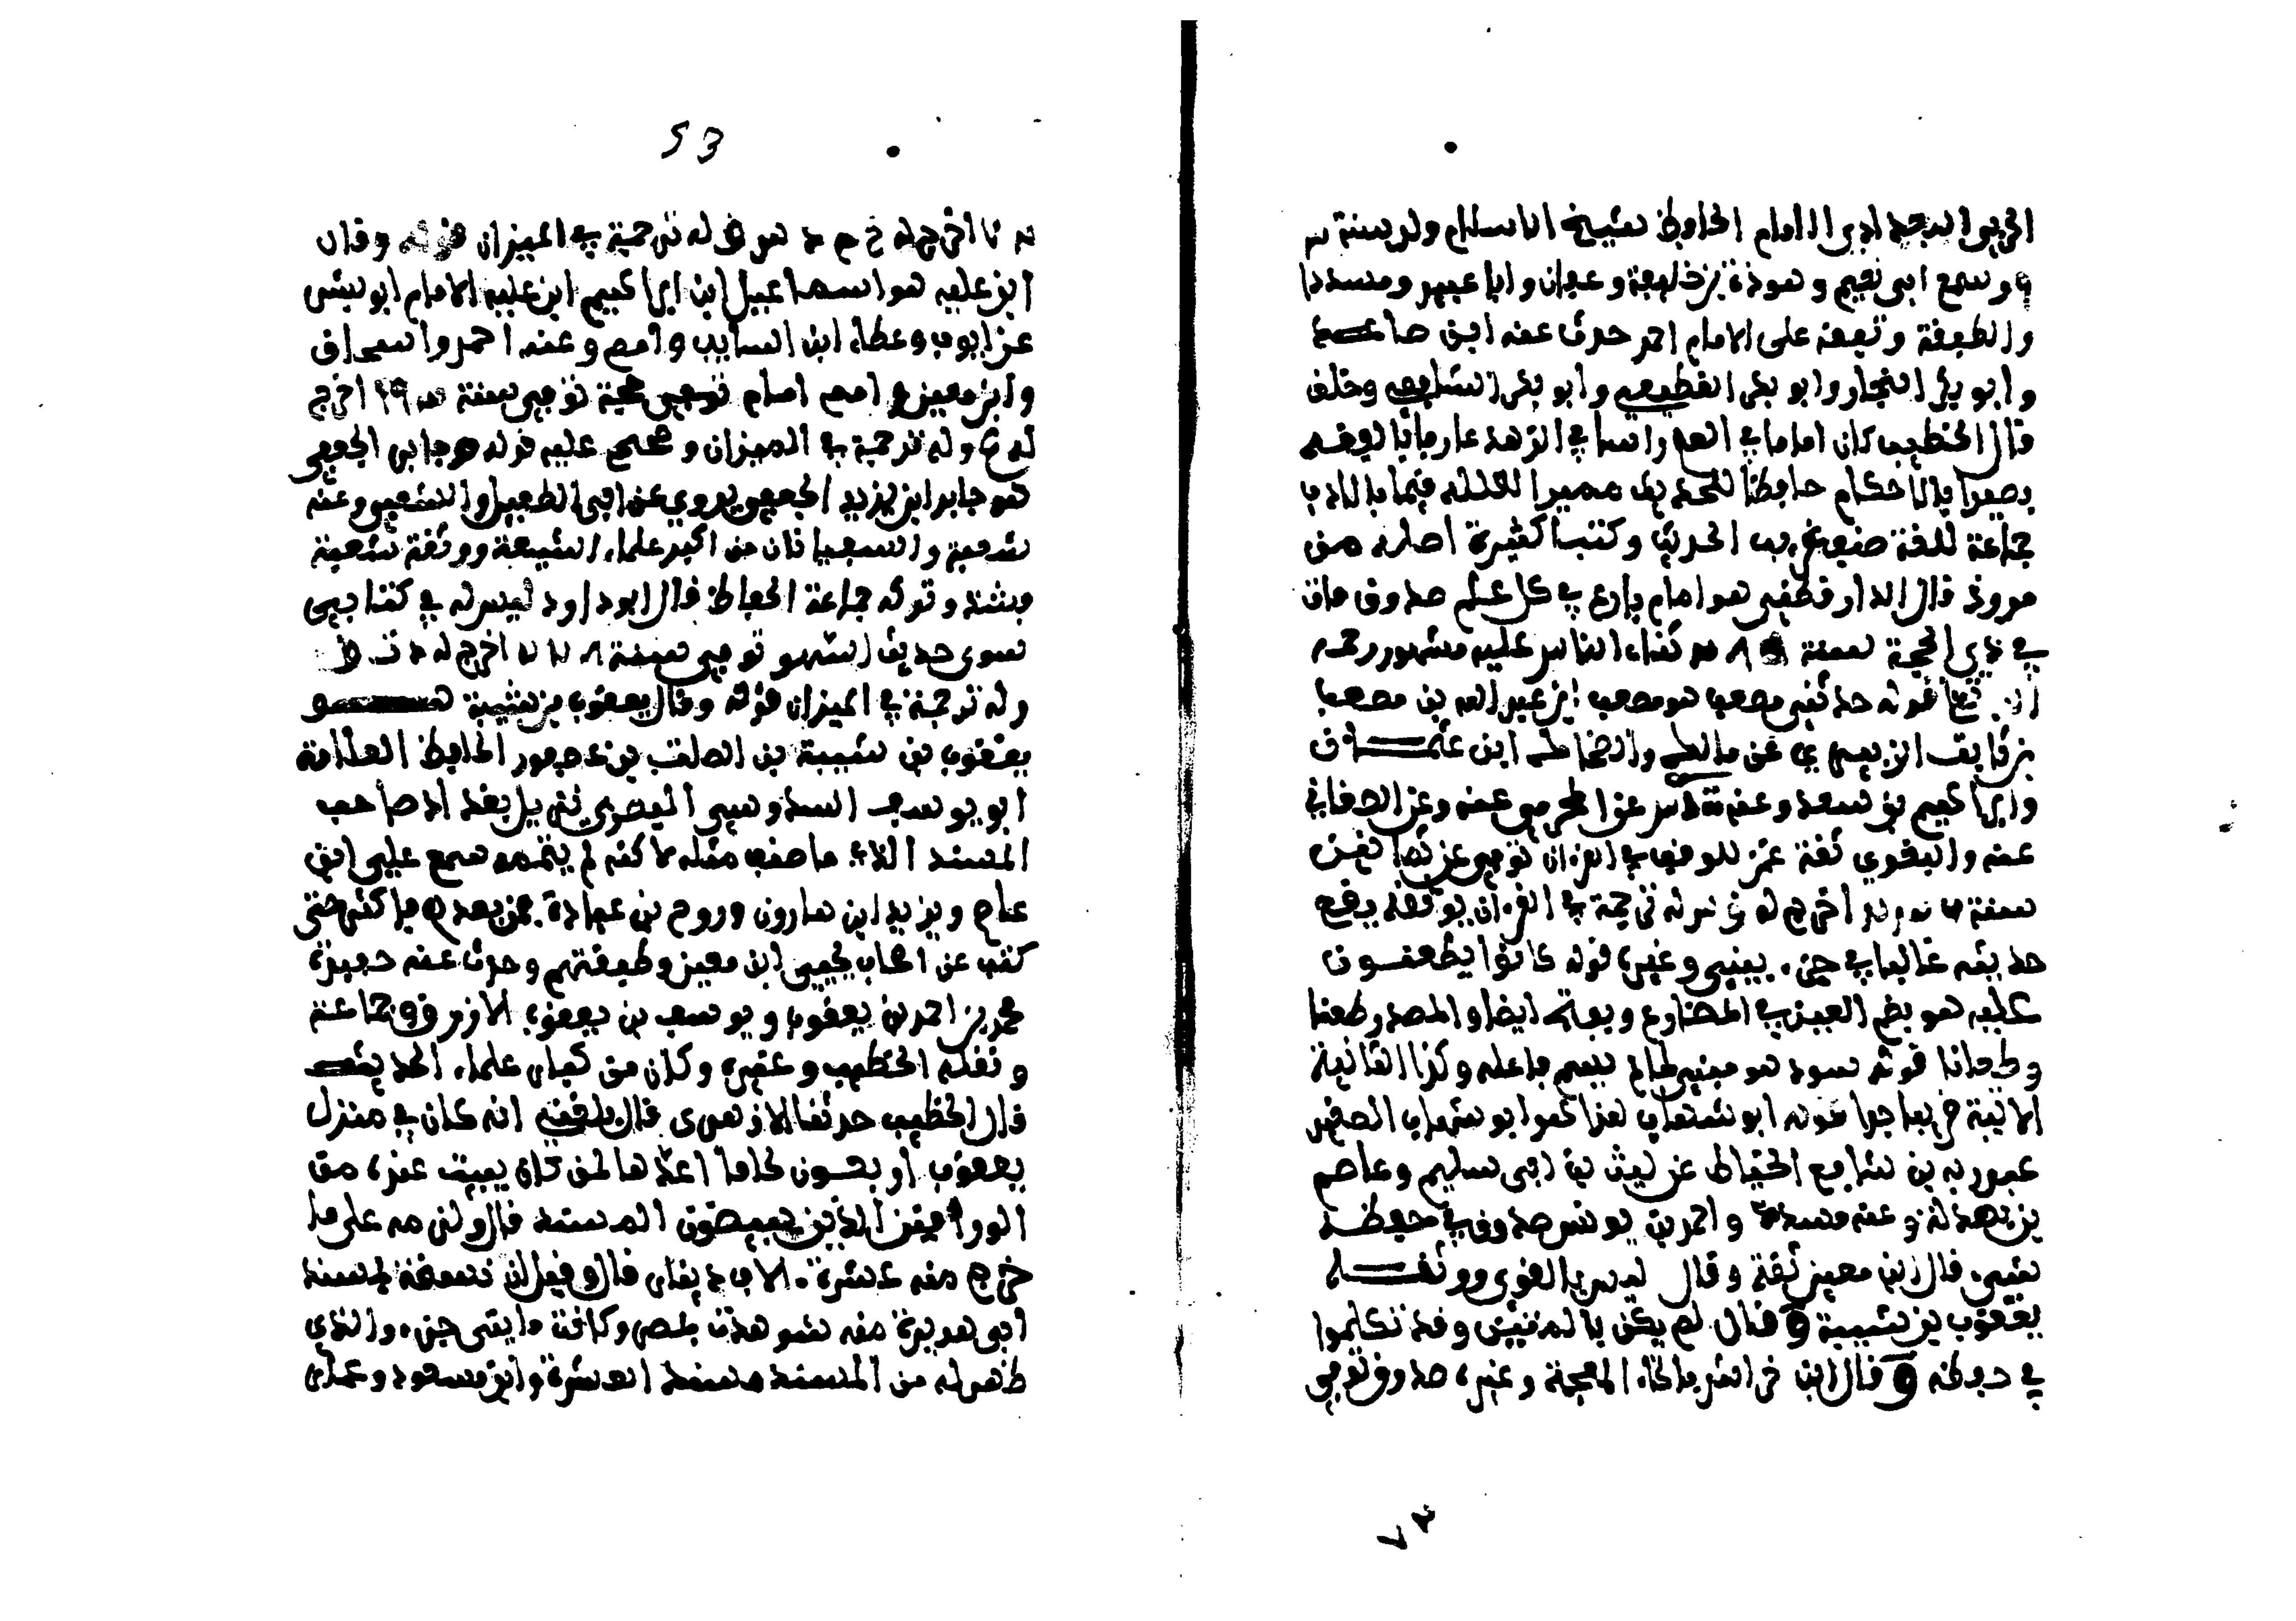 الحربي البغدادي الامام الحافظ شيخ الاسلام ولد سنة
وسمع ابي نعيم وهوذة بن خليفة وعفان وابا عبيد ومسددا
والطبقة وتفقه على الامام احمد حدث عنه ابن صاعد
وابو بكر النجار وابو بكر القطيعي وابو بكر الشافعي وخلف
قال الخطيب كان اماما في العلم راسا في الزهد عارفا بالفقه
بصيرا بالاحكام حافظا للحديث مميزا لعلله قيما بالادب
جماعة للغة صنف غريب الحديث وكتبا كثيرة اصله من
مروذ قال الدارقطني هو امام بارع في كل علم صدوق مات
في ذي الحجة سنة ثناء الناس عليه مشهور رحمه
الله قوله حدثني مصعب هو مصعب ابن عبد الله بن مصعب
بن ثابت الزبيري عن مالك والضحاك ابن عثمان
وابراهيم بن سعد وعنه عن عنه وعن الصغاني
عنه والبغوي ثقة غمز للوقف في القران توفي عن ثمانين
سنة اخرج له وله ترجمة في
حديثه غاليا في جزء بيبي وغيره قوله كانوا يطعنون
عليه هو بضم العين في المضارع وبفتحه ايضا والمصدر طعنا
وطعنانا قوله سود هو مبني لما لم يسم فاعله وكذا الثانية
الاتية قريبا جدا قوله ابو شهاب هذا هو ابو شهاب الصغير
عبد ربه بن نافع الحناط عن ليث بن ابي سليم وعاصم
بن بهدلة وعنه مسدد واحمد بن يونس صدوق في حفظه
شيء قال ابن معين ثقة وقال ليس بالقوي ووثقه
يعقوب بن شيبة وقال لم يكن بالمتين وقد تكلموا
في حفظه وقال ابن خراش بالخاء المعجمة وغيره صدوق توفي
اخرج له خ م د س ق له ترجمة في الميزان قوله وقال
ابن علية هو اسماعيل ابن ابراهيم ابن علية الامام ابو بشر
عن ايوب وعطاء ابن السايب وامم وعنه احمد واسحاق
وابن معين وامم امام حجة توفي سنة اخرج
له ع وله ترجمة في الميزان وصحح عليه قوله جابر الجعفي
هو جابر ابن يزيد الجعفي يروي عن ابي الطفيل والشعبي وعنه
شعبة والسفيانان من اكبر علماء الشيعة ووثقه شعبة
وتركه جماعة الحفاظ قال ابو داود ليس له في كتابي
سوى حديث السهو توفي سنة اخرج له د ت ق
وله ترجمة في الميزان قوله وقال يعقوب بن شيبة هو
يعقوب بن شيبة بن الصلت بن عصفور الحافظ العلامة
ابو يوسف السدوسي البصري نزيل بغداد صاحب
المسند الذي ما صنف مثله لاكنه لم يتمه سمع علي ابن
عاصم ويزيد ابن هارون وروح بن عبادة فمن بعدهم فاكثر حتى
كتب عن اصحاب يحيى ابن معين وطبقتهم وحدث عنه حفيده
محمد بن احمد بن يعقوب ويوسف بن يعقوب الازرق وجماعة
وثقه الخطيب وغيره وكان من كبار علماء الحديث
قال الخطيب حدثنا الازهري قال بلغني انه كان في منزل
يعقوب اربعون لحافا اعدها لمن كان يبيت عنده من
الوراقين الذين يبيضون المسند قال ولزمه على ما
خرج منه عشرة الاف دينار قال وقيل ان نسخة لمسند
ابي هريرة منه شوهدت بمصر وكانت مايتي جزء والذي
ظهر له من المسند مسند العشرة وابن مسعود وعمار